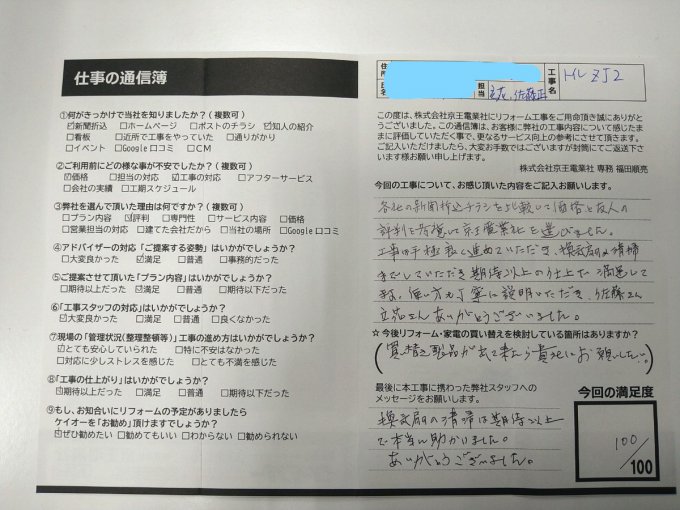 仕事の通信簿
①何がきっかけで当社を知りましたか？(複数可)
☑新聞折込 □ホームページ □ポストのチラシ ☑知人の紹介
□看板 □近所で工事をやっていた □通りがかり
□イベント □Google口コミ □CM
②ご利用前にどの様な事が不安でしたか？(複数可)
☑価格 □担当の対応 ☑工事の対応 □アフターサービス
□会社の実績 □工期スケジュール
③弊社を選んで頂いた理由は何ですか？(複数可)
□プラン内容 ☑評判 □専門性 □サービス内容 □価格
□営業担当の対応 □建てた会社だから □当社の場所 □Google口コミ
④アドバイザーの対応「ご提案する姿勢」はいかがでしょうか？
□大変良かった ☑満足 □普通 □事務的だった
⑤ご提案させて頂いた「プラン内容」はいかがでしょうか？
□期待以上だった ☑満足 □普通 □期待以下だった
⑥「工事スタッフの対応」はいかがでしょうか？
☑大変良かった □満足 □普通 □良くなかった
⑦現場の「管理状況(整理整頓等)」「工事の進め方はいかがでしょうか？
☑とても安心していられた □特に不安はなかった
□対応に少しストレスを感じた □とても不満を感じた
⑧「工事の仕上がり」はいかがでしょうか？
☑期待以上だった □満足 □普通 □期待以下だった
⑨もし、お知合いにリフォームの予定がありましたら
ケイオーを「お勧め」頂けますでしょうか？
☑ぜひ勧めたい □勧めてもいい □わからない □勧められない
担当
佐藤正
工事名
トイレ ZJ2
この度は、株式会社京王電業社にリフォーム工事をご用命頂き誠にありがとう
ございました。この通信簿は、お客様に弊社の工事内容について感じたま
まに評価していただく事で、更なるサービス向上の参考にさせて頂きます。
ご記入いただけましたら、大変お手数ではございますが封筒にてご返送下さ
います様お願い申し上げます。
株式会社京王電業社 専務 福田順亮
今回の工事について、お感じ頂いた内容をご記入お願いします。
各社の新聞折込チラシを比較して価格と友人の
評判を考慮して京王電業社を選びました。
工事は手極よく進めていただき、換気扇の清掃
までしていただき期待以上の仕上で満足して
ます。使い方も丁寧に説明いただき、佐藤さん
立花さんありがとうございました。
☆今後リフォーム・家電の買い替えを検討している箇所はありますか？
(買替え製品が出て来たら貴社にお願いしたい。)
最後に本工事に携わった弊社スタッフへの
メッセージをお願いします。
換気扇の清掃は期待以上
で本当に助かりました。
ありがとうございました。
今回の満足度
100
/100